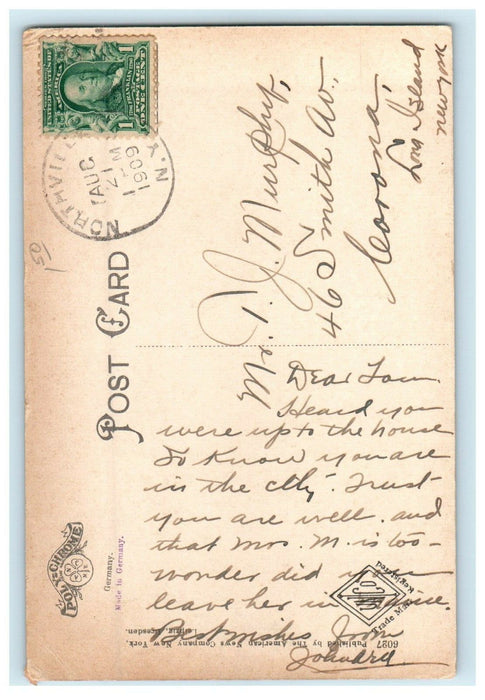 POST CARD
UNITED STATES OF AMERICA
POSTAGE
ONE CENT
1 1
NORTHVILLE N.Y.
AUG
21
M
1909
50
Mr. T. J. Murphy,
46 Smith Av.,
Corona,
Long Island
New York
Dear Tom.
Heard you
were up to the house
To Know you are
in the city. Trust
you are well. and
that Mrs. M. is too-
wonder did you
leave her in
Best wishes from
POLY-CHROME
Germany.
Made in Germany.
Trade Mark
Registered
6027 Published by The American News Company New York,
Leipzig, Dresden.